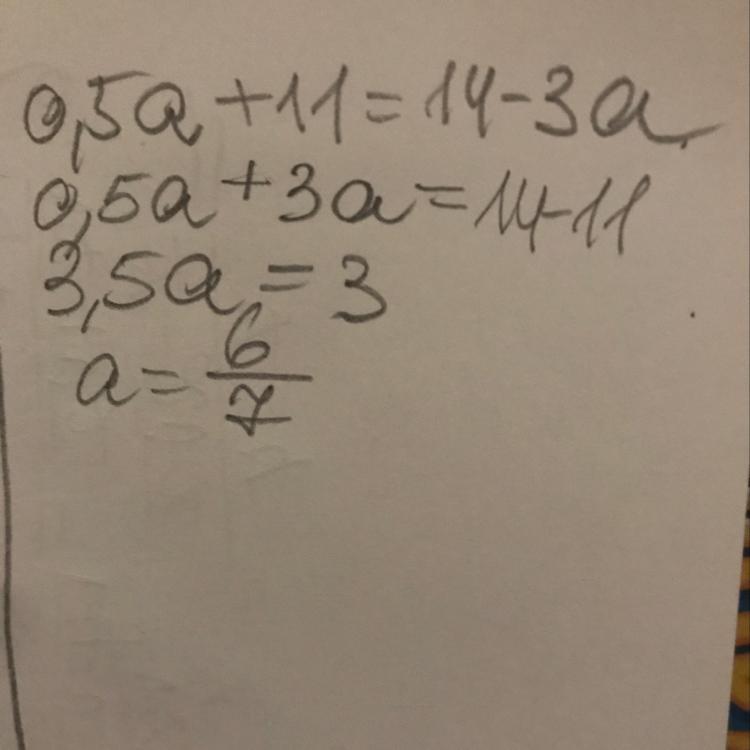 0,5a+11=14-3a
0,5a+3a=14-11
3,5a=3
a=6/7